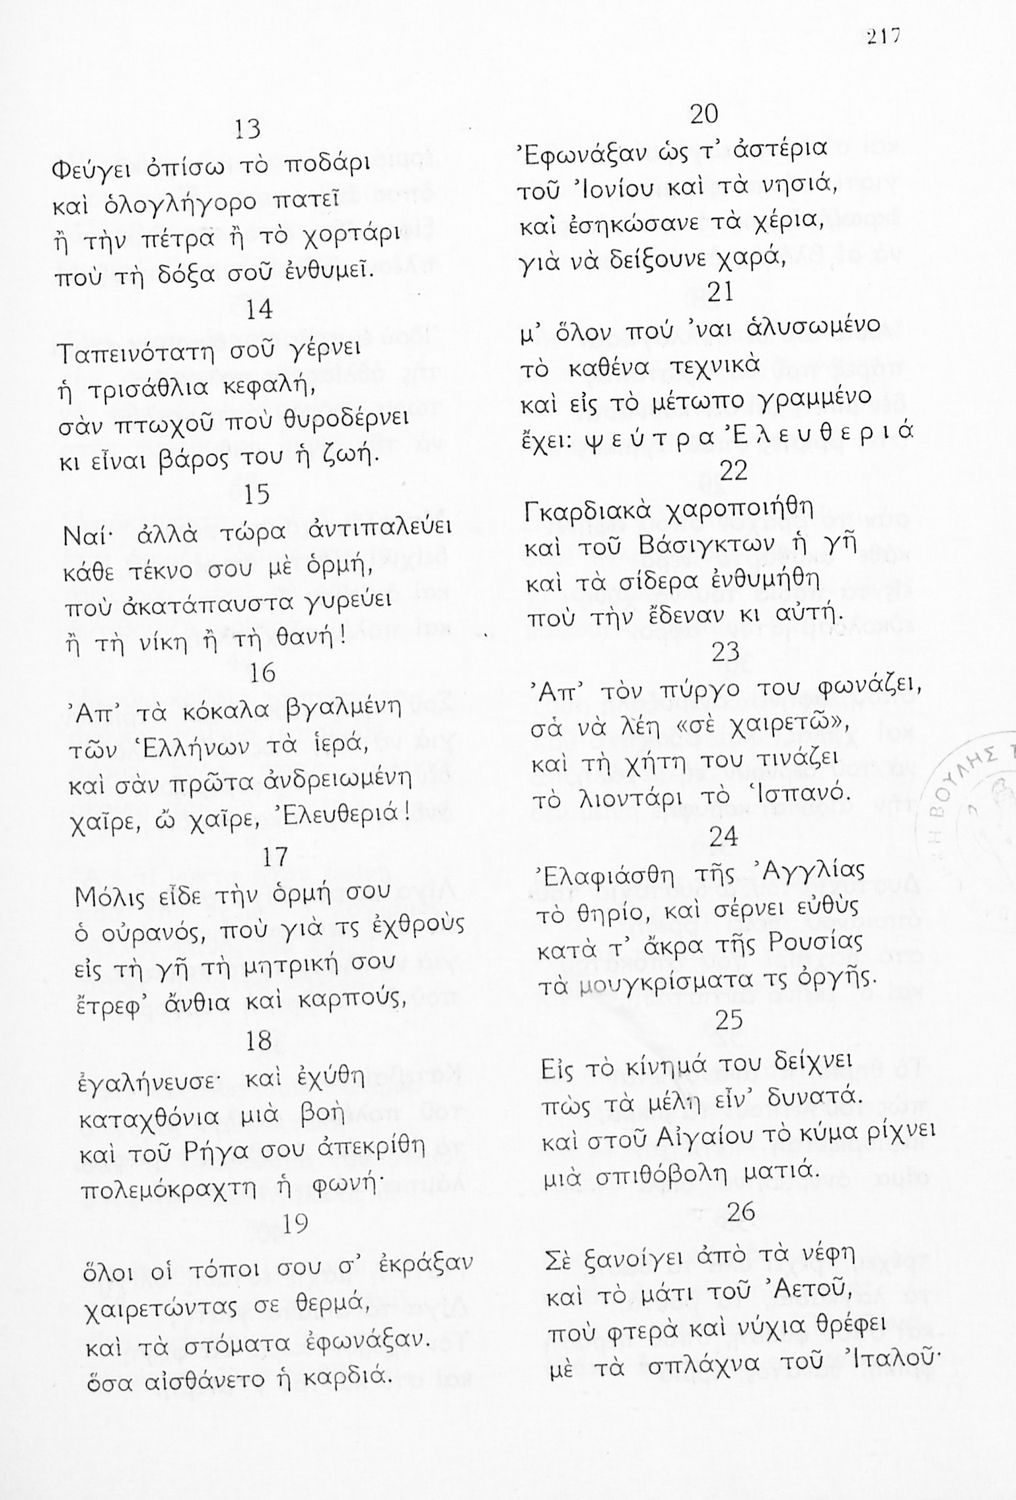 217
13
Φεύγει ὀπίσω τὸ ποδάρι
καὶ ὁλογλήγορο πατεῖ
ἢ τὴν πέτρα ἢ τὸ χορτάρι
ποὺ τὴ δόξα σοῦ ἐνθυμεῖ.
14
Ταπεινότατη σοῦ γέρνει
ἡ τρισάθλια κεφαλή,
σὰν πτωχοῦ ποὺ θυροδέρνει
κι εἶναι βάρος του ἡ ζωή.
15
Ναί· ἀλλὰ τώρα ἀντιπαλεύει
κάθε τέκνο σου μὲ ὁρμή,
ποὺ ἀκατάπαυστα γυρεύει
ἢ τὴ νίκη ἢ τὴ θανή!
16
Ἀπ' τὰ κόκαλα βγαλμένη
τῶν Ἑλλήνων τὰ ἱερά,
καὶ σὰν πρῶτα ἀνδρειωμένη
χαῖρε, ὢ χαῖρε, Ἐλευθεριά!
17
Μόλις εἶδε τὴν ὁρμή σου
ὁ οὐρανός, ποὺ γιὰ τς ἐχθροὺς
εἰς τὴ γῆ τὴ μητρική σου
ἔτρεφ' ἄνθια καὶ καρπούς,
18
ἐγαλήνευσε· καὶ ἐχύθη
καταχθόνια μιὰ βοὴ
καὶ τοῦ Ρήγα σου ἀπεκρίθη
πολεμόκραχτη ἡ φωνή·
19
ὅλοι οἱ τόποι σου σ' ἐκράξαν
χαιρετώντας σε θερμά,
καὶ τὰ στόματα ἐφωνάξαν.
ὅσα αἰσθάνετο ἡ καρδιά.
20
Ἐφωνάξαν ὡς τ' ἀστέρια
τοῦ Ἰονίου καὶ τὰ νησιά,
καὶ ἐσηκώσανε τὰ χέρια,
γιὰ νὰ δείξουνε χαρά,
21
μ' ὅλον πού 'ναι ἁλυσωμένο
τὸ καθένα τεχνικὰ
καὶ εἰς τὸ μέτωπο γραμμένο
ἔχει: ψεύτρα Ἐλευθεριά
22
Γκαρδιακὰ χαροποιήθη
καὶ τοῦ Βάσιγκτων ἡ γῆ
καὶ τὰ σίδερα ἐνθυμήθη
ποὺ τὴν ἔδεναν κι αὐτή.
23
Ἀπ' τὸν πύργο του φωνάζει,
σὰ νὰ λέη «σὲ χαιρετῶ»,
καὶ τὴ χήτη του τινάζει
τὸ λιοντάρι τὸ Ἱσπανό.
24
Ἐλαφιάσθη τῆς Ἀγγλίας
τὸ θηρίο, καὶ σέρνει εὐθὺς
κατὰ τ' ἄκρα τῆς Ρουσίας
τὰ μουγκρίσματα τς ὀργῆς.
25
Εἰς τὸ κίνημά του δείχνει
πὼς τὰ μέλη εἶν' δυνατά.
καὶ στοῦ Αἰγαίου τὸ κύμα ρίχνει
μιὰ σπιθόβολη ματιά.
26
Σὲ ξανοίγει ἀπὸ τὰ νέφη
καὶ τὸ μάτι τοῦ Ἀετοῦ,
ποὺ φτερὰ καὶ νύχια θρέφει
μὲ τὰ σπλάχνα τοῦ Ἰταλοῦ·
Η ΒΟΥΛΗΣ